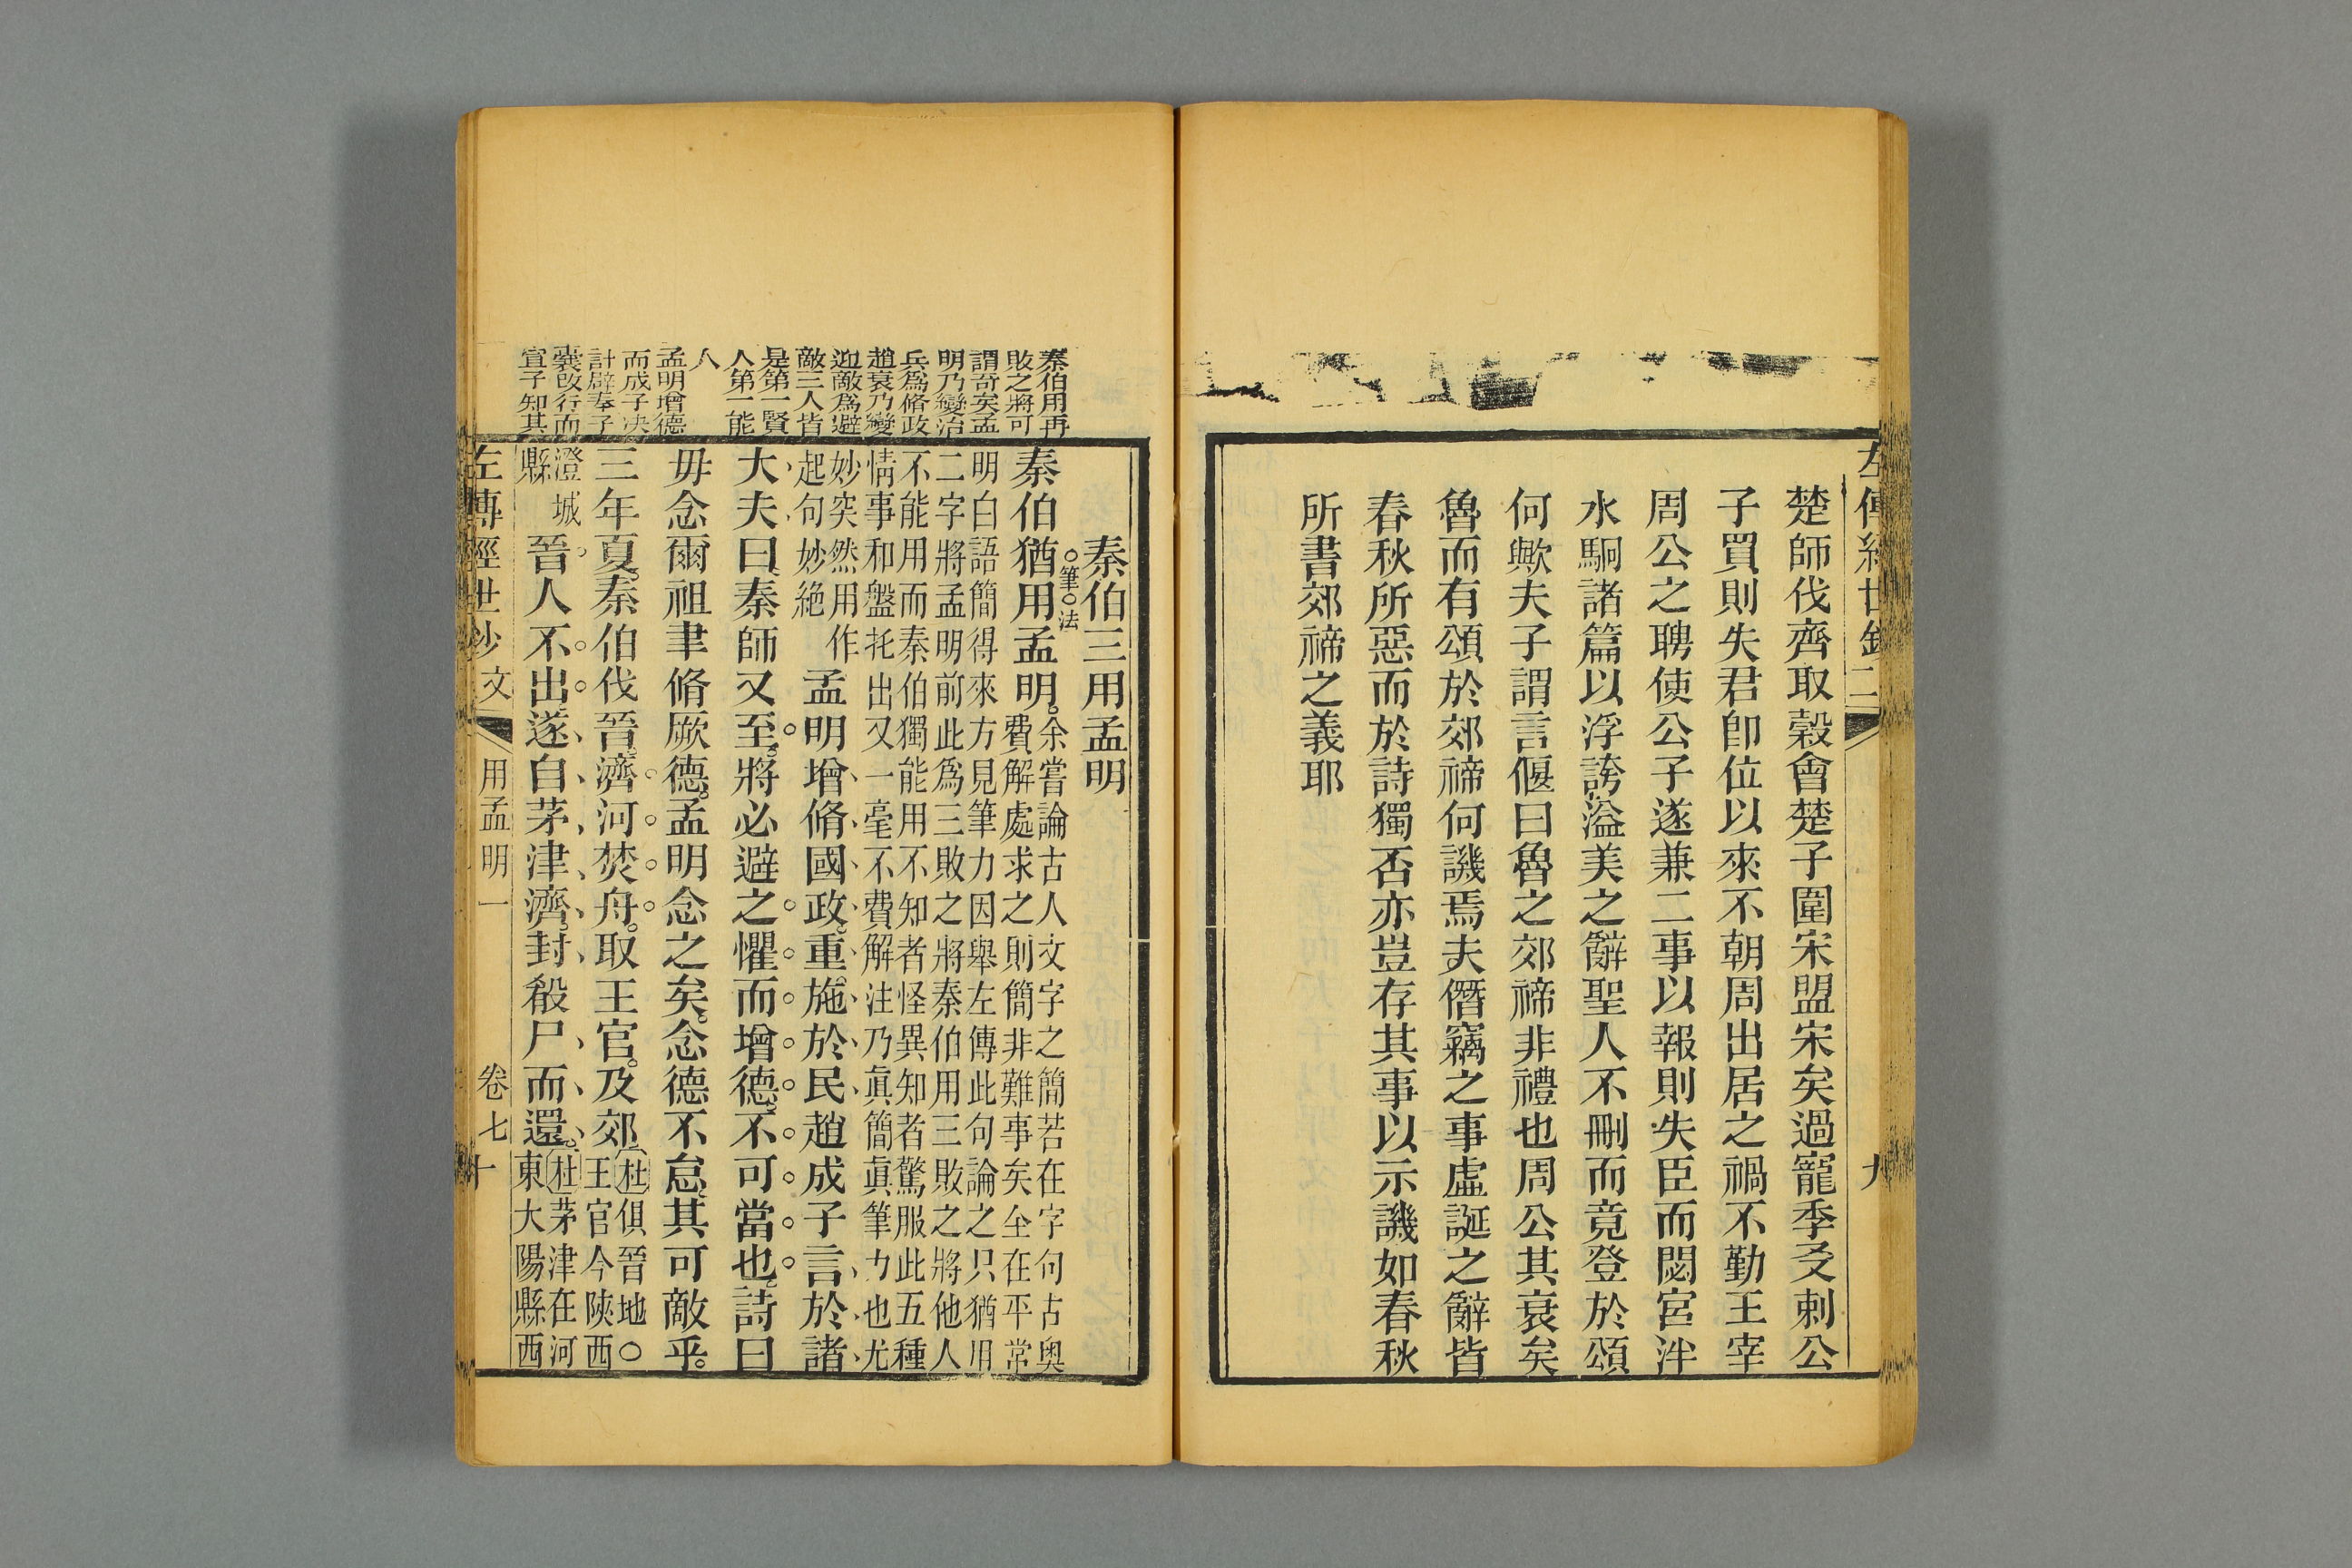 左傳經世鈔
九
楚師伐齊取穀會楚子圍宋盟宋矣過寵季友刺公
子買則失君卽位以來不朝周出居之禍不勤王宰
周公之聘使公子遂兼二事以報則失臣而閟宮泮
水駉諸篇以浮誇溢美之辭聖人不刪而竟登於頌
何歟夫子謂言偃曰魯之郊禘非禮也周公其衰矣
魯而有頌於郊禘何譏焉夫僭竊之事虛誕之辭皆
春秋所惡而於詩獨否亦豈存其事以示譏如春秋
所書郊禘之義耶
秦伯用再
敗之將可
謂奇矣孟
明乃變治
兵爲脩政
趙衰乃變
迎敵爲避
敵三人皆
是第一賢
人第一能
人
孟明增德
而成子决
計辟奉子
囊改行而
宣子知其
秦伯三用孟明
筆法
秦伯猶用孟明。
余嘗論古人文字之簡若在字句古奧
費解處求之則簡非難事矣全在平常
明白語簡得來方見筆力因舉左傳此句論之只猶用
二字將孟明前此爲三敗之將秦伯用三敗之將他人
不能用而秦伯獨能用不知者怪異知者驚服此五種
情事和盤托出又一毫不費解注乃眞簡眞筆力也尤
妙突然用作
起句妙絶
孟明增脩國政。重施於民趙成子言於諸
大夫曰、秦師又至。將必避之懼而增德。不可當也。詩曰
毋念爾祖聿脩厥德。孟明念之矣。念德不怠。其可敵乎。
三年夏。秦伯伐晉。濟河焚舟。取王官。及郊。
杜俱晉地○
王官今陝西
澄城
縣
晉人不出。遂自茅津濟。封殽尸而還。
杜茅津在河
東大陽縣西
左傳經世鈔 文 用孟明一 卷七 十